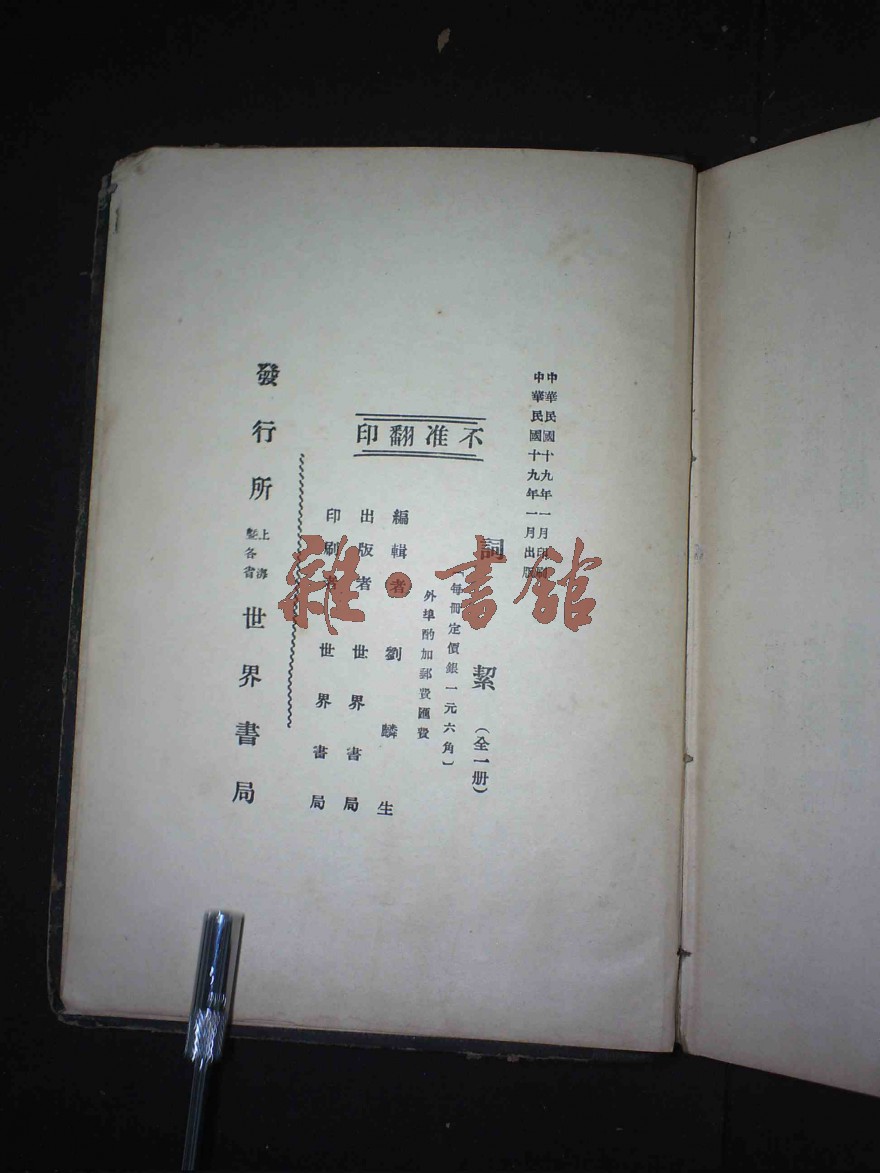 中華民國十九年一月印刷
中華民國十九年一月出版
詞絜（全一册）
〔每冊定價銀一元六角〕
外埠酌加郵費匯費
不准翻印
編輯者 劉麟生
出版者 世界書局
印刷者 世界書局
發行所 上海曁各省 世界書局
雜·書館